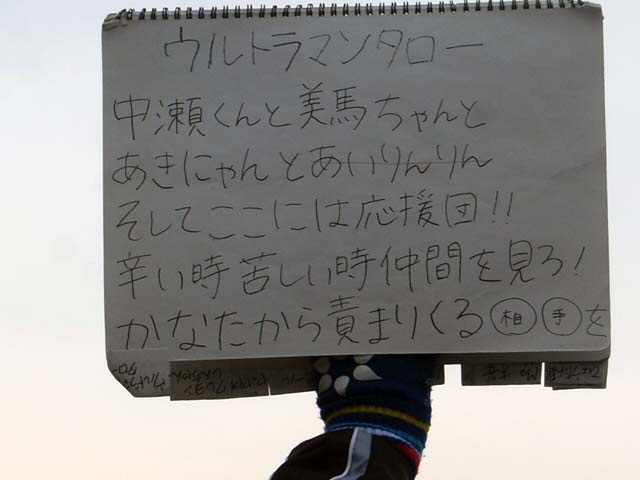 ウルトラマンタロー
中瀬くんと美馬ちゃんと
あきにゃんとあいりんりん
そしてここには応援団!!
辛い時苦しい時仲間を見ろ!
かなたから責まりくる相手を
ウルトラマンタロー